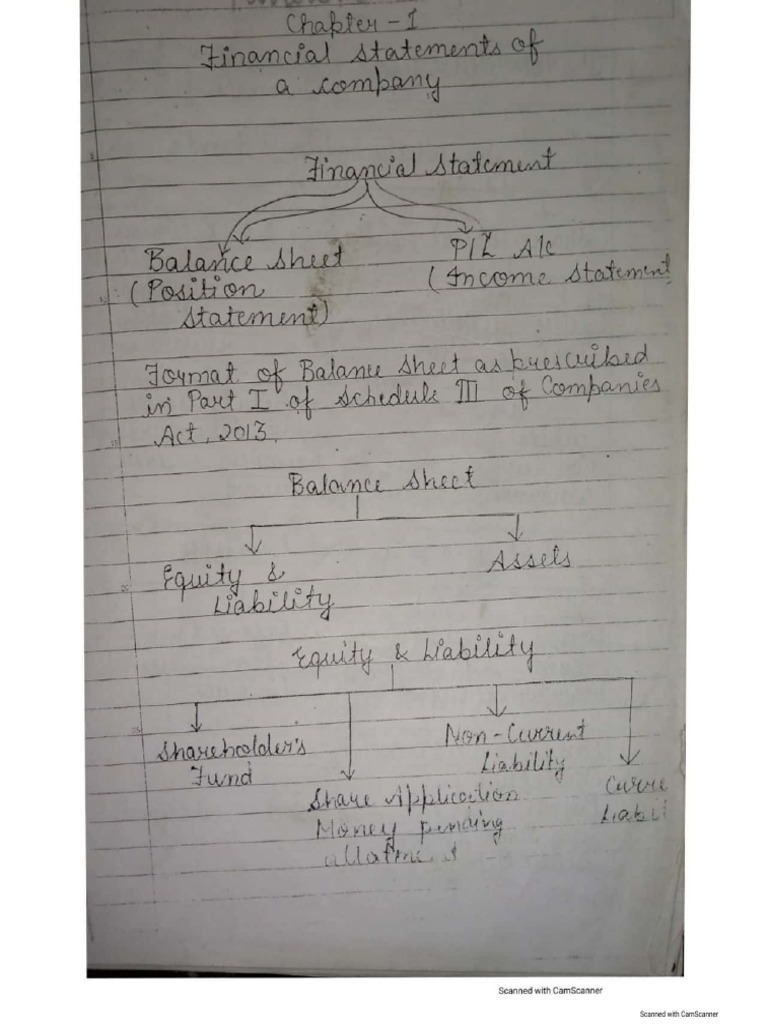 Chapter - 1
Financial Statements of
a company
Financial Statement
Balance Sheet
(Position
Statement)
P/L A/c
(Income Statement
Format of Balance Sheet as prescribed
in Part I of Schedule III of Companies
Act, 2013.
Balance Sheet
Equity &
Liability
Assets
Equity & Liability
Shareholder's
Fund
Share Application
Money pending
Non-Current
Liability
Scanned with CamScanner
Scanned with CamScanner